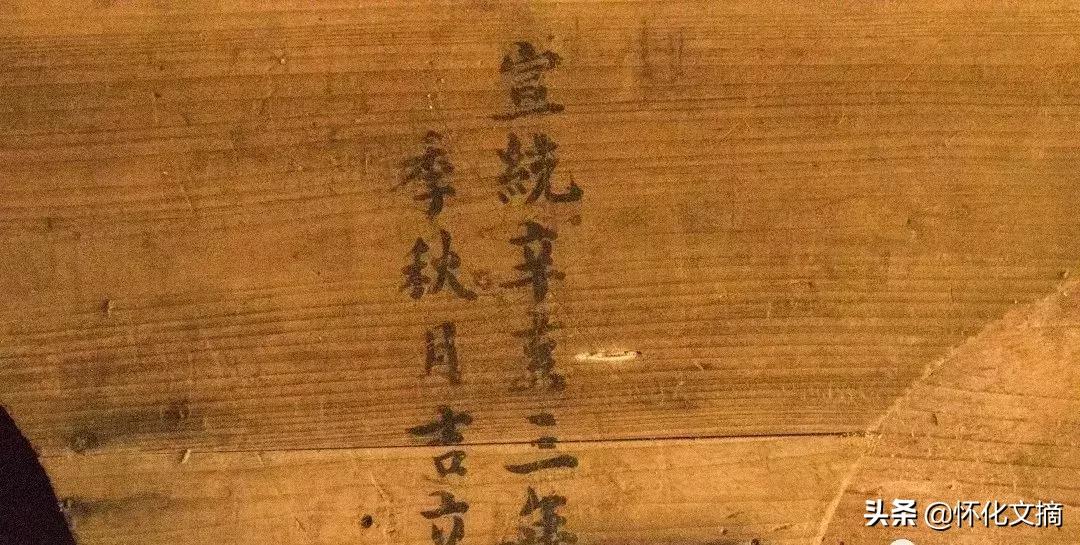 宣統辛亥三年
季秋月吉立
头条 @怀化文摘